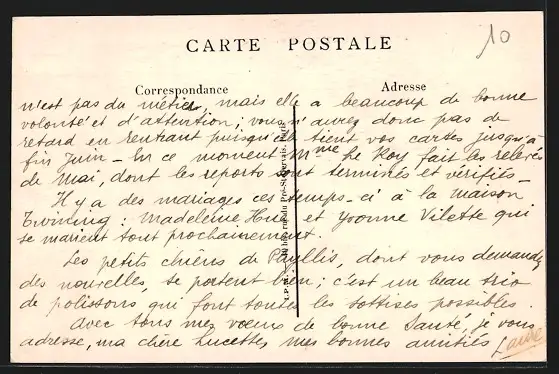 10
CARTE POSTALE
Correspondance
Adresse
n'est pas du métier, mais elle a beaucoup de bonne
volonté et d'attention; vous n'aurez donc pas de
retard en rentrant puisqu'elle tient vos cartes jusqu'à
fin Juin - En ce moment Mme Le Roy fait les relevés
de Mai, dont les reports sont terminés et vérifiés -
Il y a des mariages ces temps-ci à la maison
Twining: Madeleine et Yvonne Vilette qui
se marient tout prochainement.
Les petits chiens de Phyllis, dont vous demandez
des nouvelles, se portent bien; c'est un beau trio
de polissons qui font toutes les sottises possibles
Avec tous mes voeux de bonne Santé, je vous
adresse, ma chère Lucette, mes bonnes amitiés